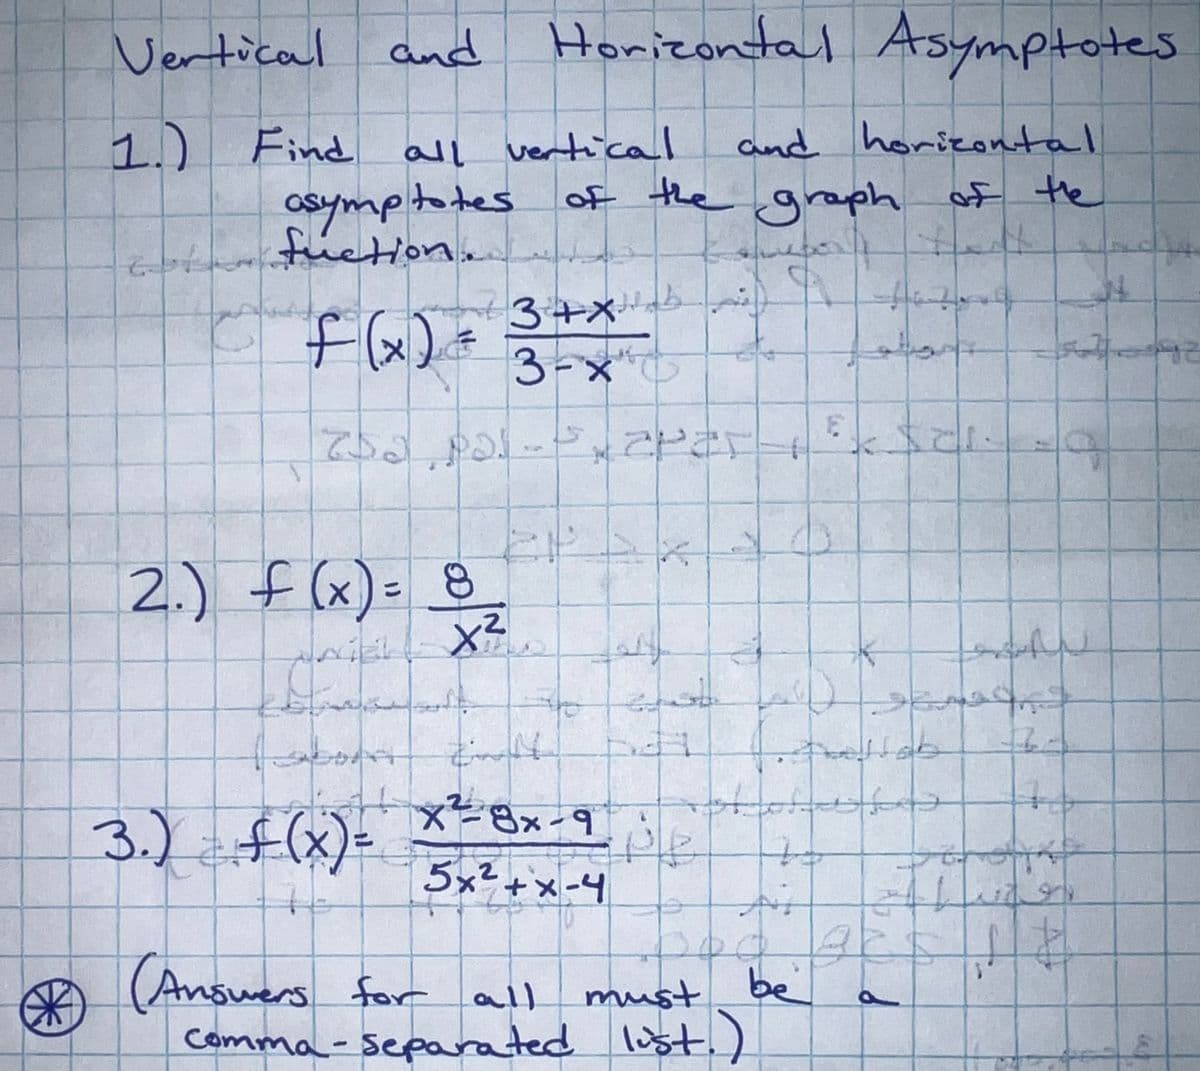 Vertical and Horizontal Asymptotes
1.) Find all vertical and horizontal
asymptotes of the graph of the
fuction.
f(x) = 3+x / 3-x
2.) f(x) = 8 / x²
3.) f(x) = x²-8x-9 / 5x²+x-4
(Answers for all must be a
comma-separated list.)